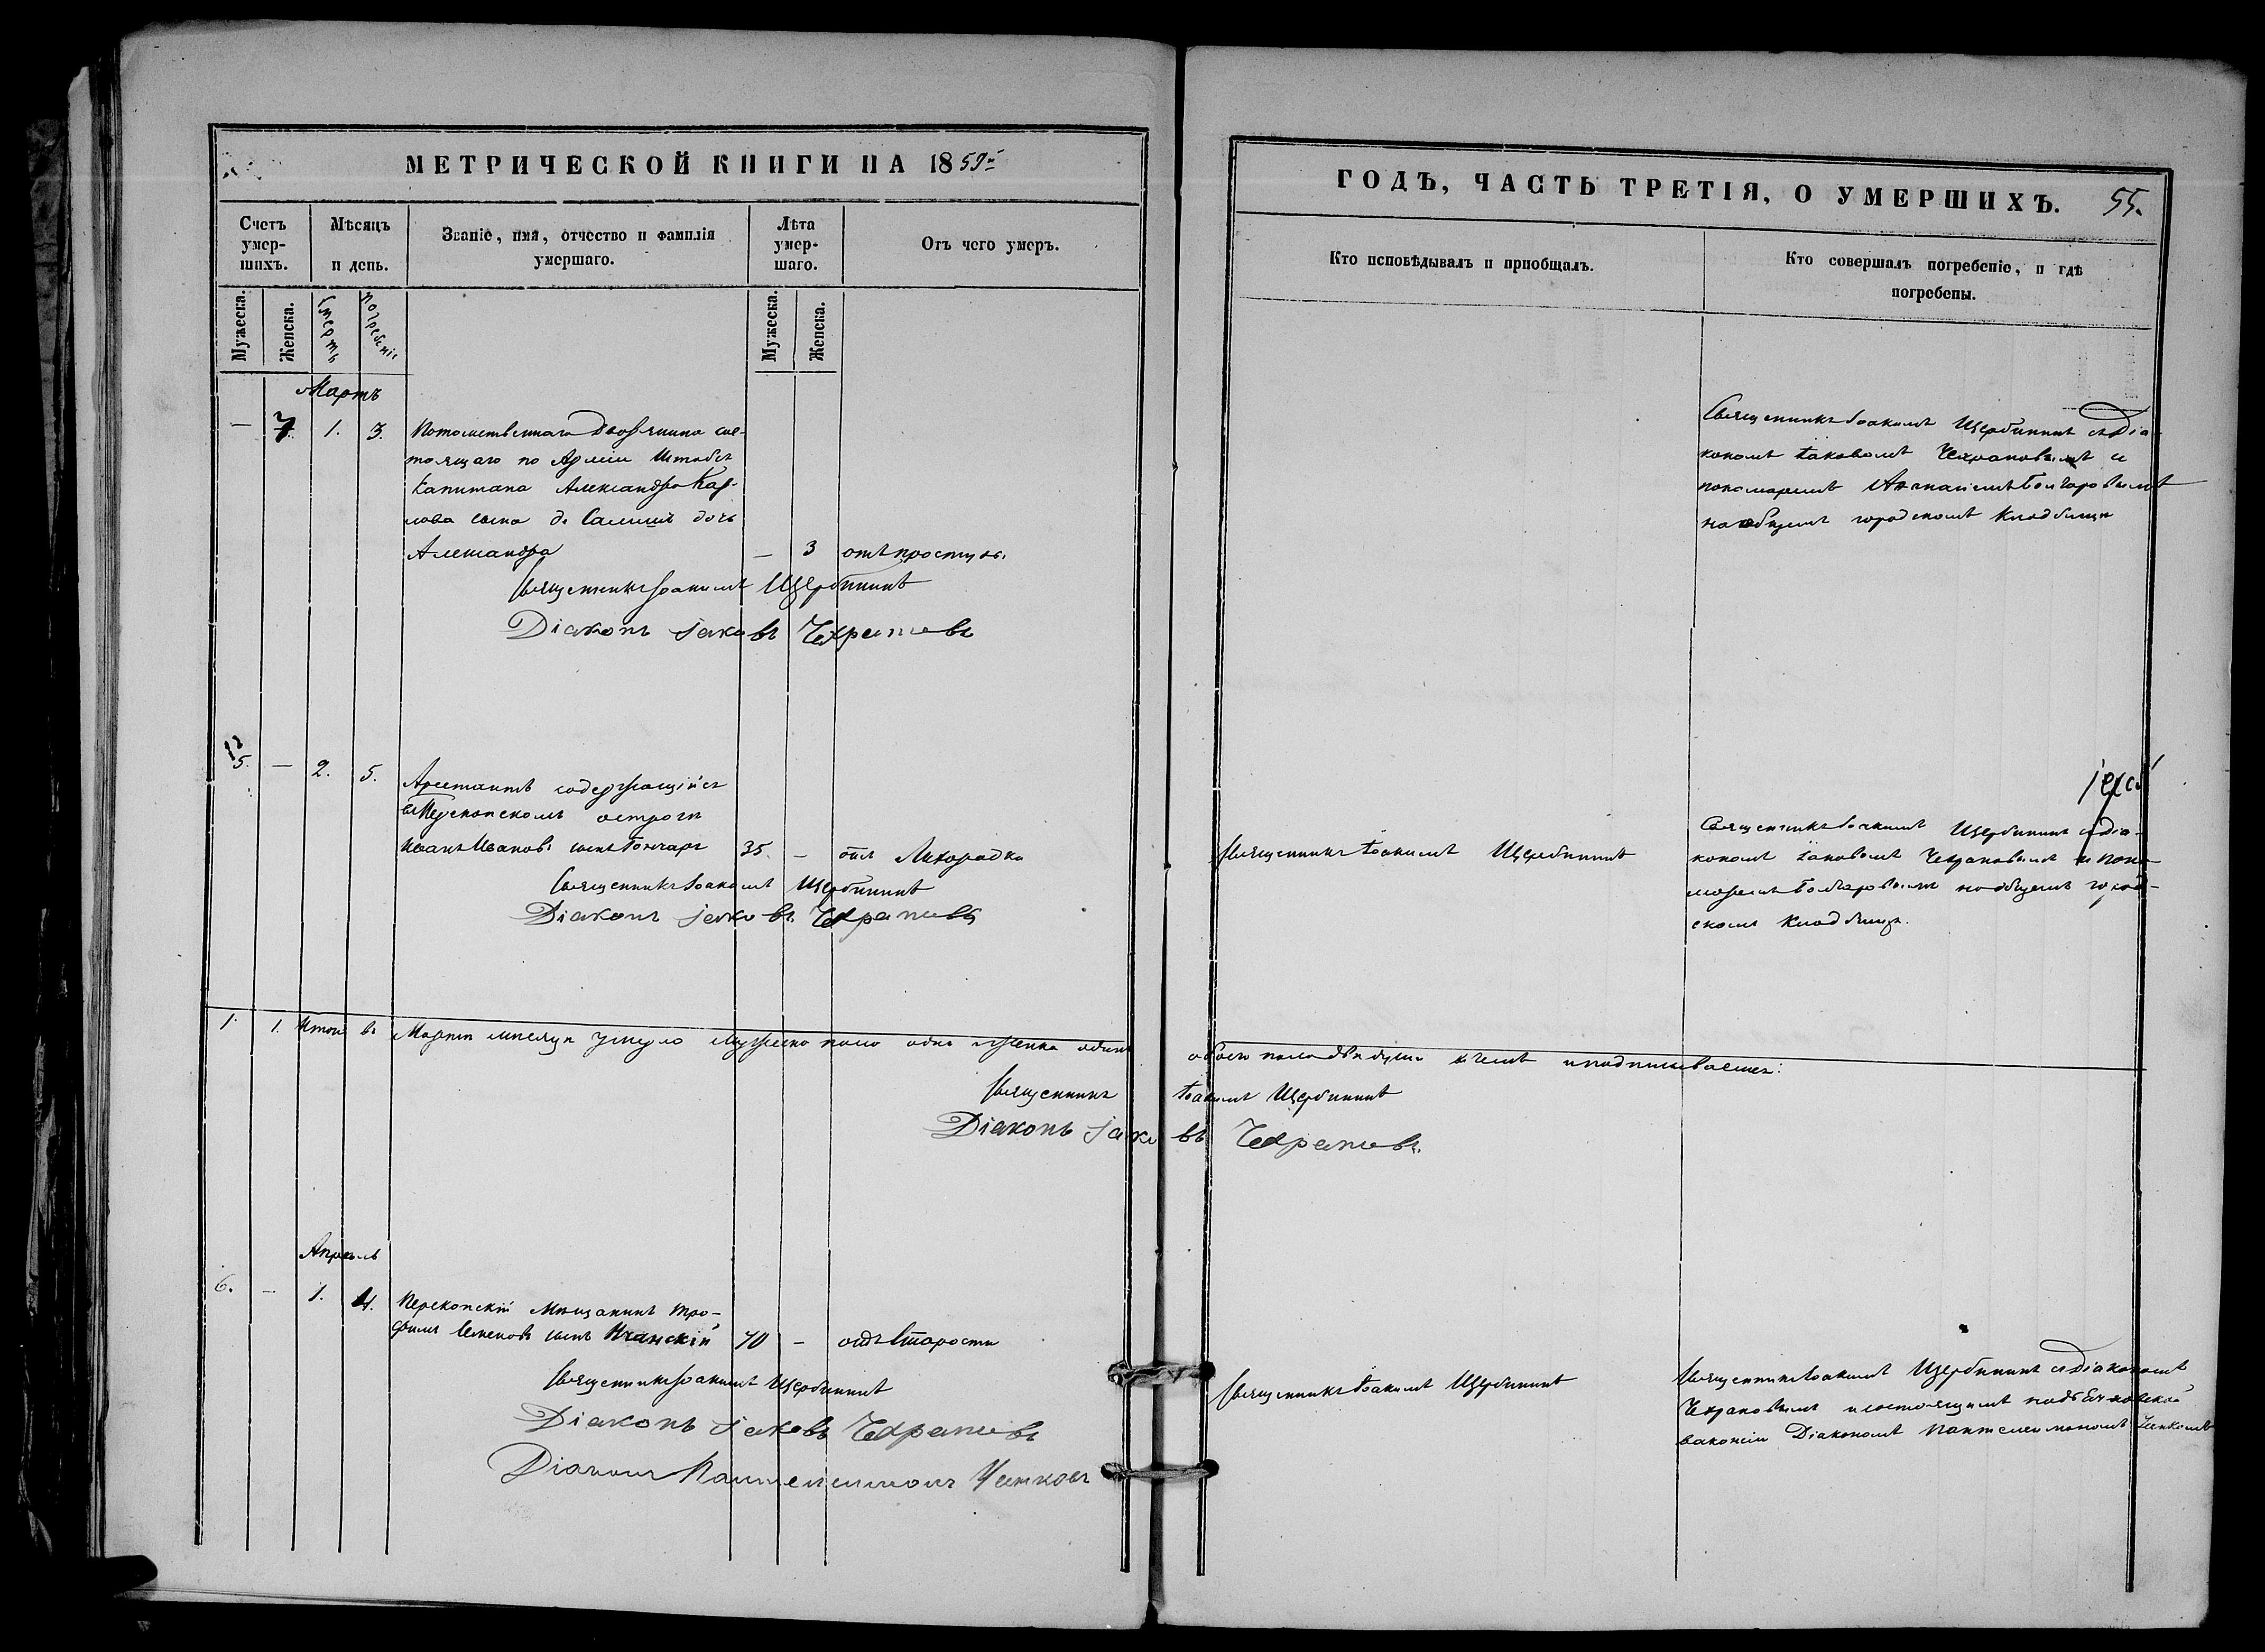 МЕТРИЧЕСКОЙ КНИГИ НА 1859й
ГОДЪ, ЧАСТЬ ТРЕТІЯ, О УМЕРШИХЪ. 55.
Счетъ умер-шихъ.
Мѣсяцъ и день.
Званіе, имя, отчество и фамилія умершаго.
Лѣта умер-шаго.
Отъ чего умеръ.
Кто исповѣдывалъ и пріобщалъ.
Кто совершалъ погребеніе, и гдѣ погребены.
Мужеска. Женска. Смерть погребеніе Мужеска. Женска.
Мартъ
— 7. 1. 3. Потомственнаго Дворянина сос-
тоящаго по Арміи Штабсъ
Капитана Александра Кар-
лова сына де дочь
Александра — 3 отъ простуды.
Священникъ Іоакимъ Щербининъ
Діаконъ Іаковъ Чехрановъ
Священникъ Іоакимъ Щербининъ съ Діа-
кономъ Іаковомъ Чехрановымъ и
пономаремъ Болгаровымъ
на общемъ городскомъ кладбищѣ
5. — 2. 5. Арестантъ содержащійся
въ Перекопскомъ острогѣ
Иванъ Ивановъ сынъ Гончаръ 35. — отъ Лихорадки
Священникъ Іоакимъ Щербининъ
Діаконъ Іаковъ Чехрановъ
Священникъ Іоакимъ Щербининъ
Священникъ Іоакимъ Щербининъ съ діа-
кономъ Іаковомъ Чехрановымъ и поно-
маремъ Болгаровымъ на общемъ город-
скомъ кладбищѣ.
1. 1. Итого въ Мартѣ мѣсяцѣ умерло мужеска пола одна женска одна обоего пола двѣ души въ чемъ и подписываемся:
Священникъ Іоакимъ Щербининъ
Діаконъ Іаковъ Чехрановъ.
Апрѣль
6. — 1. 4. Перекопскій Мѣщанинъ Тро-
фимъ Семеновъ сынъ 70 — отъ Старости
Священникъ Іоакимъ Щербининъ
Діаконъ Іаковъ Чехрановъ
Діаконъ Пантелеимонъ
Священникъ Іоакимъ Щербининъ
Священникъ Іоакимъ Щербининъ съ Діакономъ
Чехрановымъ и состоящимъ на
вакансіи Діакономъ Пантелеимономъ